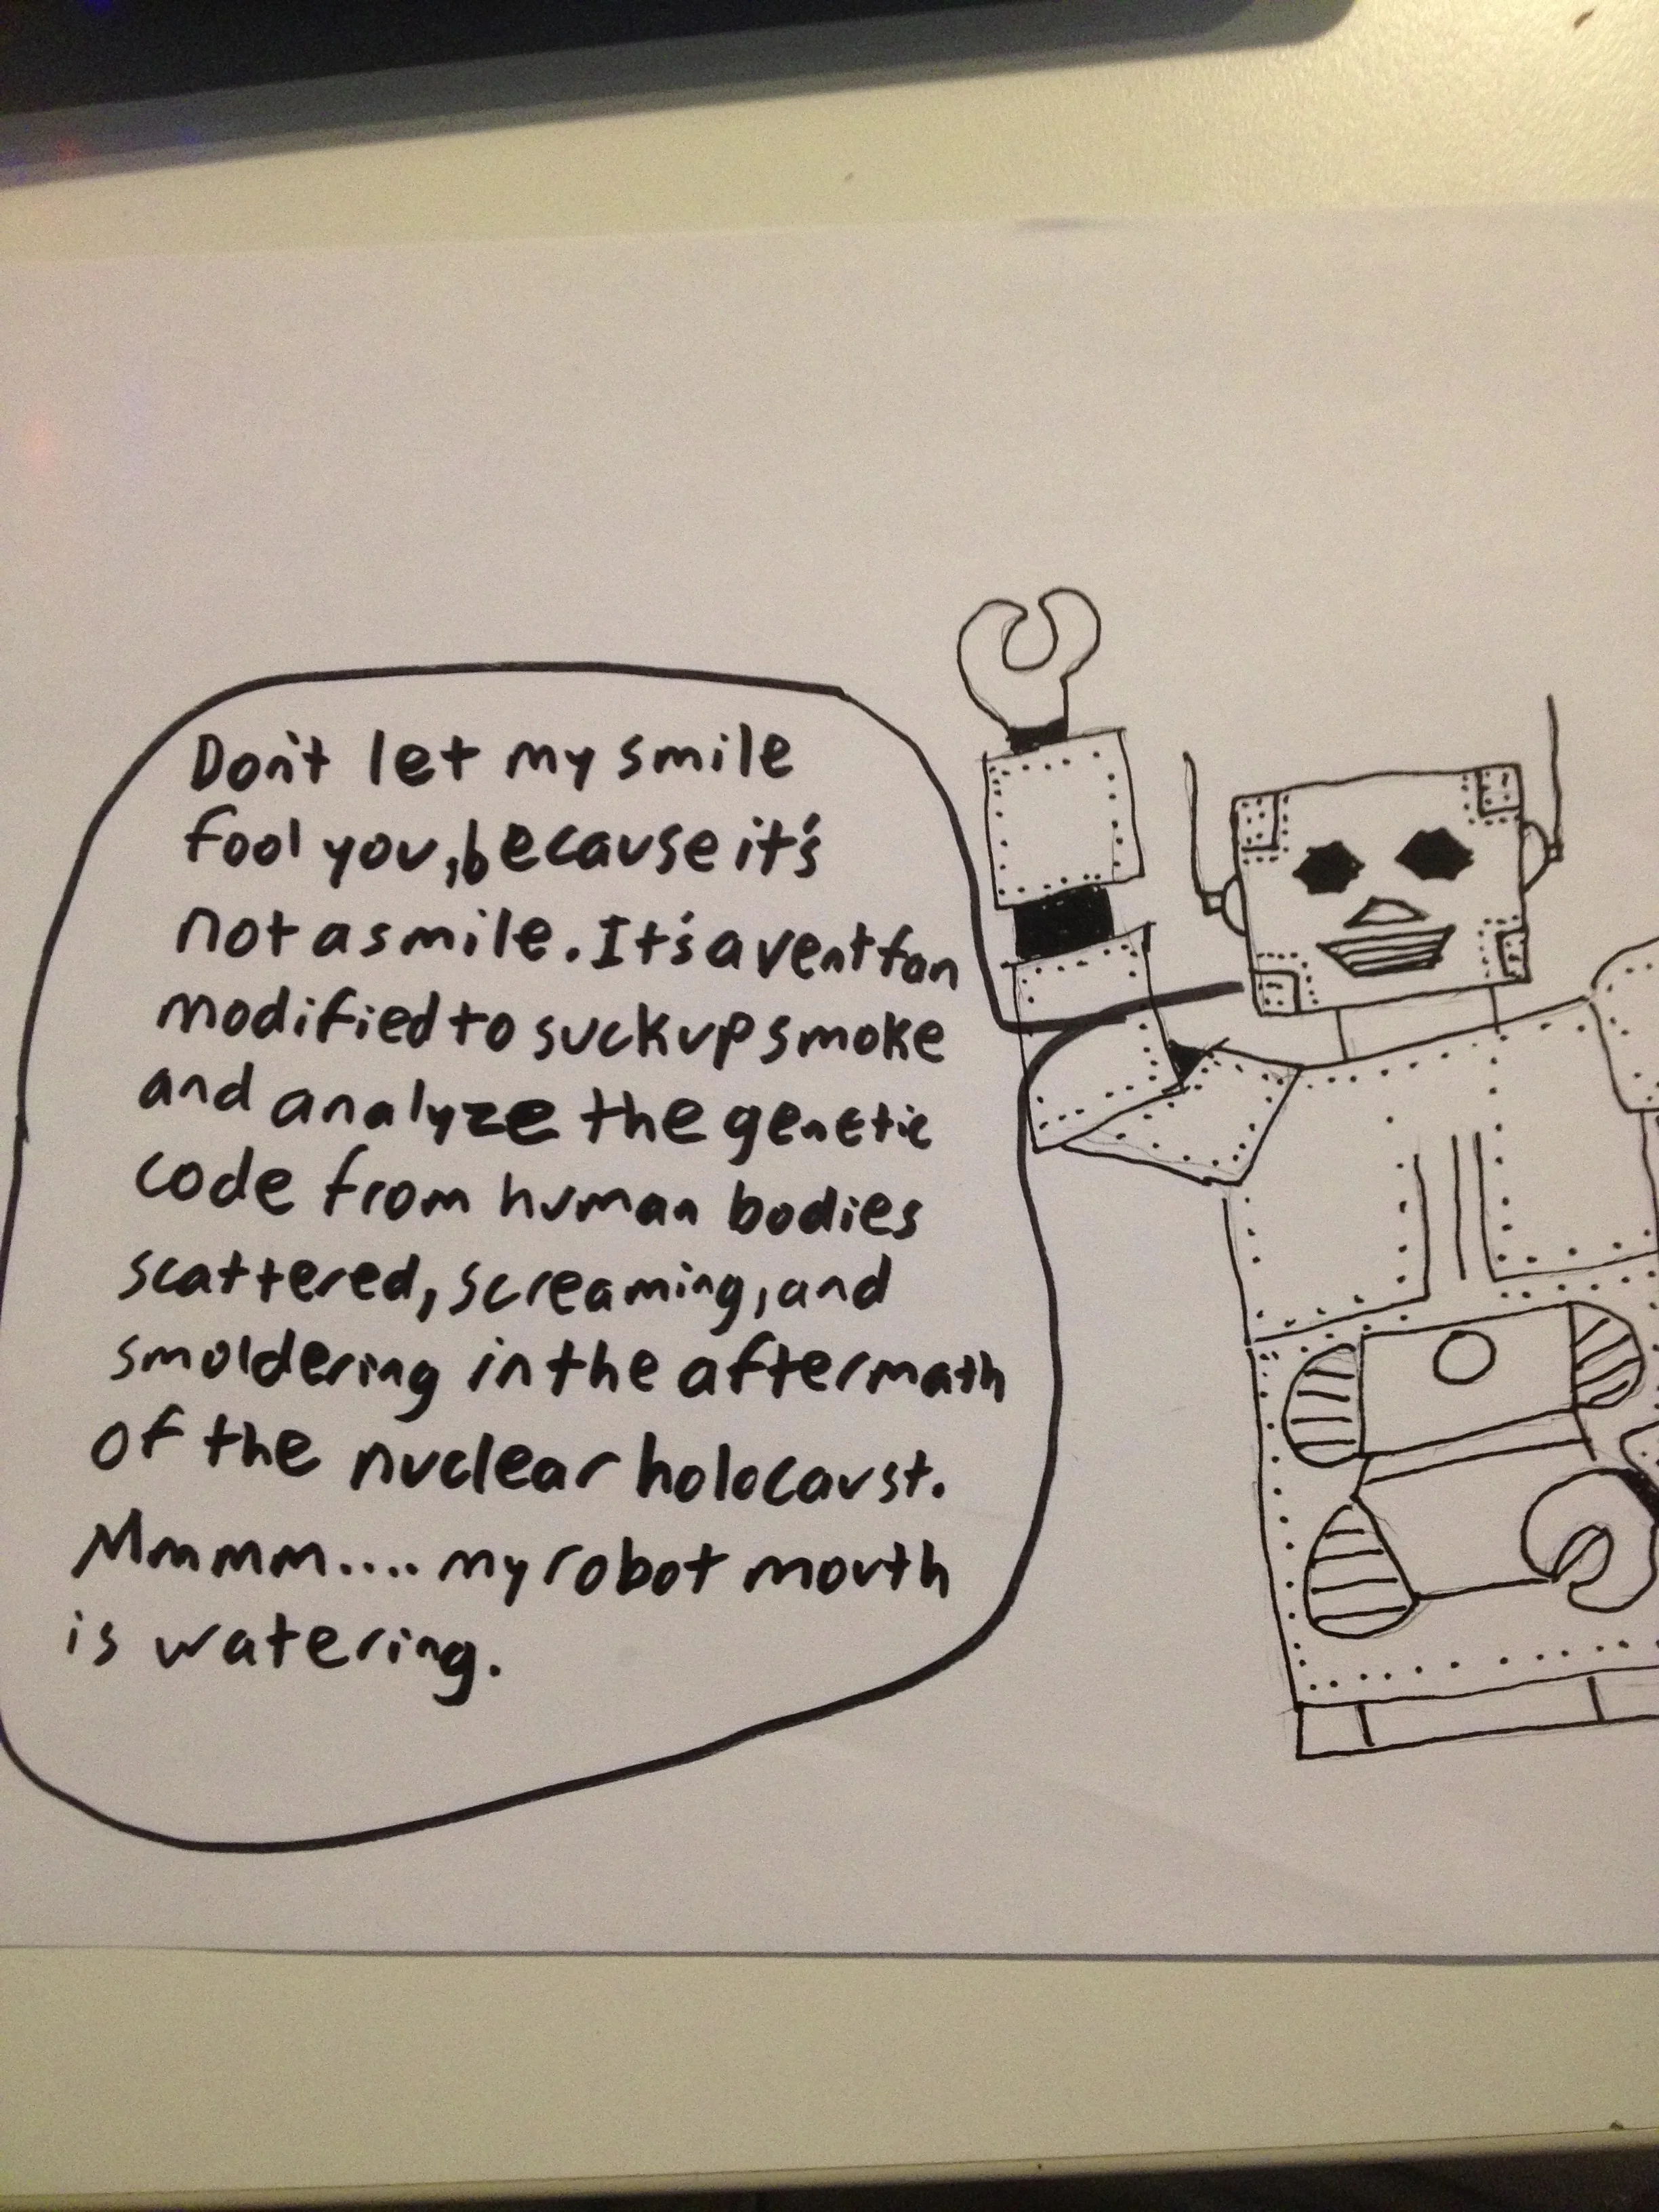 Don't let my smile
fool you, because it's
not a smile. It's a vent fan
modified to suck up smoke
and analyze the genetic
code from human bodies
scattered, screaming, and
smoldering in the aftermath
of the nuclear holocaust.
Mmmm.... my robot mouth
is watering.